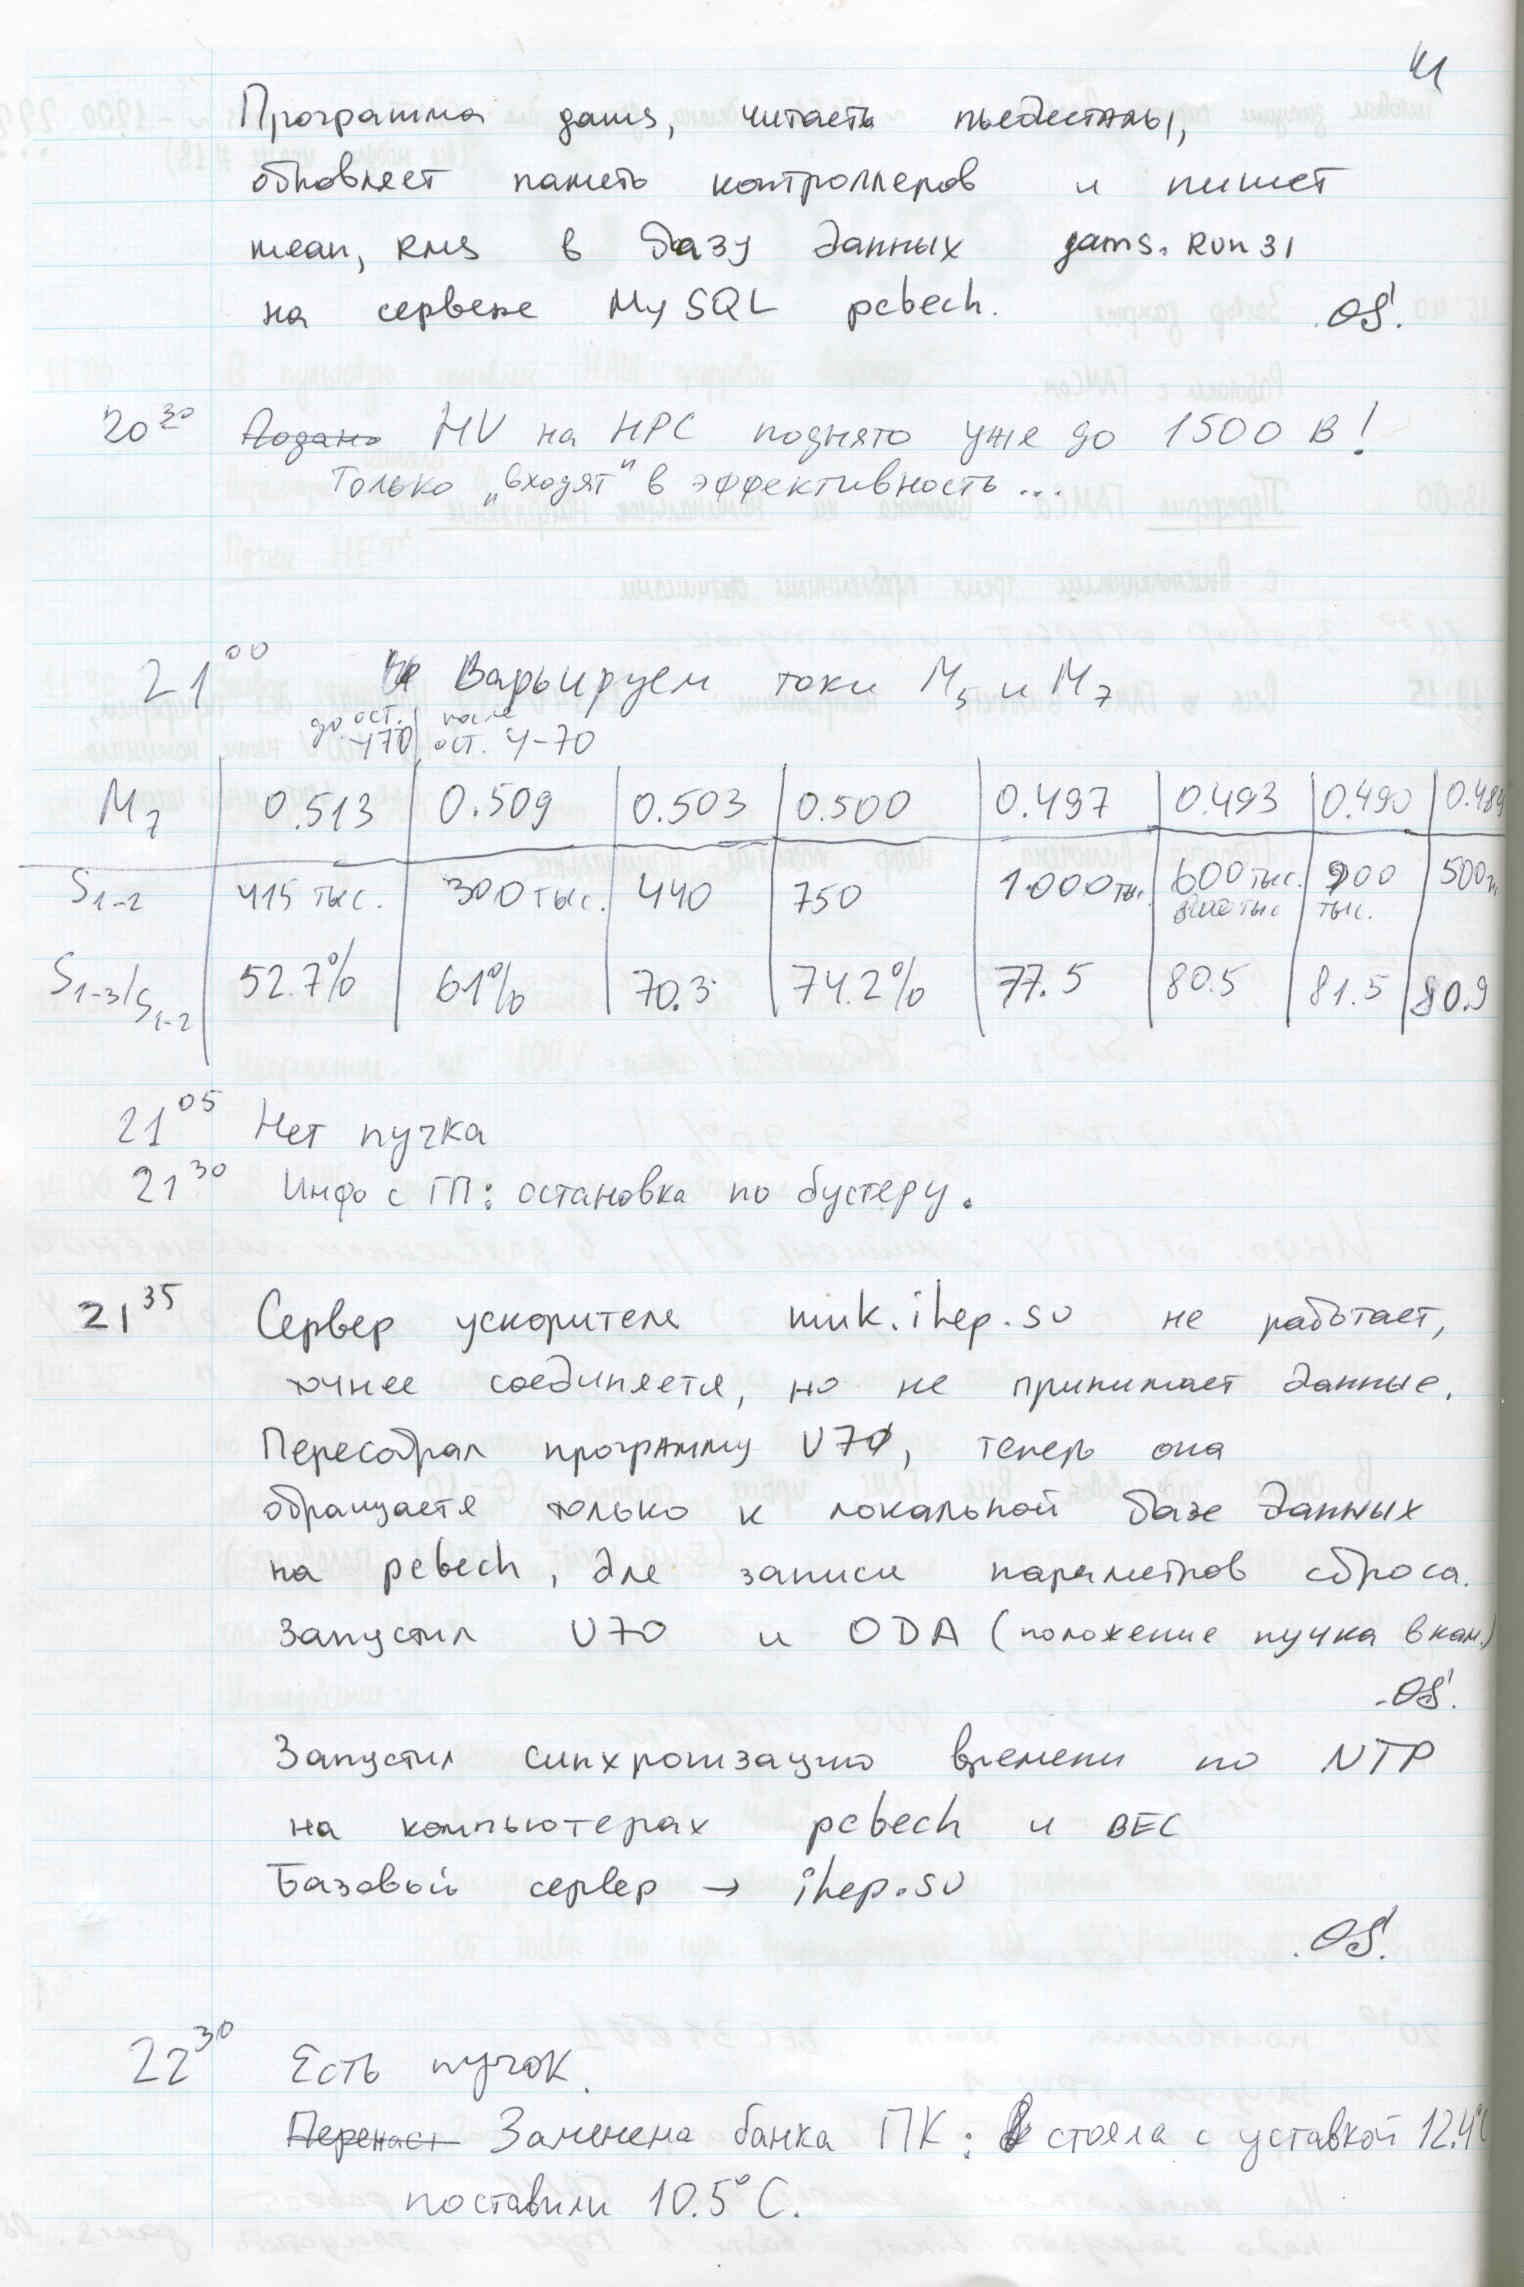 41
Программа gams, читаеть пьедесталы,
обновляет память контроллеров и пишет
mean, RMS в базу данных gams.Run31
на сервере MySQL pcbech. OS.
20 30 Подано HV на HPC поднято уже до 1500 В!
Только „входят" в эффективность...
21 00 Варьируем токи M5 и M7
до ост. У70 | после ост. У-70
M7 0.513 0.509 0.503 0.500 0.497 0.493 0.490
S1-2 415 тыс. 300 тыс. 440 750 1000 тыс. 600 тыс. 900 тыс.
S1-3/S1-2 52.7% 61% 70.3 74.2% 77.5 80.5 81.5 80.9
21 05 Нет пучка
21 30 Инфо с ГП: остановка по бустеру.
21 35 Сервер ускорителя muk.ihep.su не работает,
точнее соединяется, но не принимает данные.
Пересобрал программу U70, теперь она
обращаетя только к локальной базе данных
на pcbech, для записи параметров сброса.
Запустил U70 и ODA (положение пучка в кам.)
OS.
Запустил синхронизацию времени по NTP
на компьютерах pcbech и BEC
Базовый сервер → ihep.su
OS.
22 30 Есть пучок.
Перенаст Заменена банка ПК: стояла с уставкой 12.4°C
поставили 10.5°C.